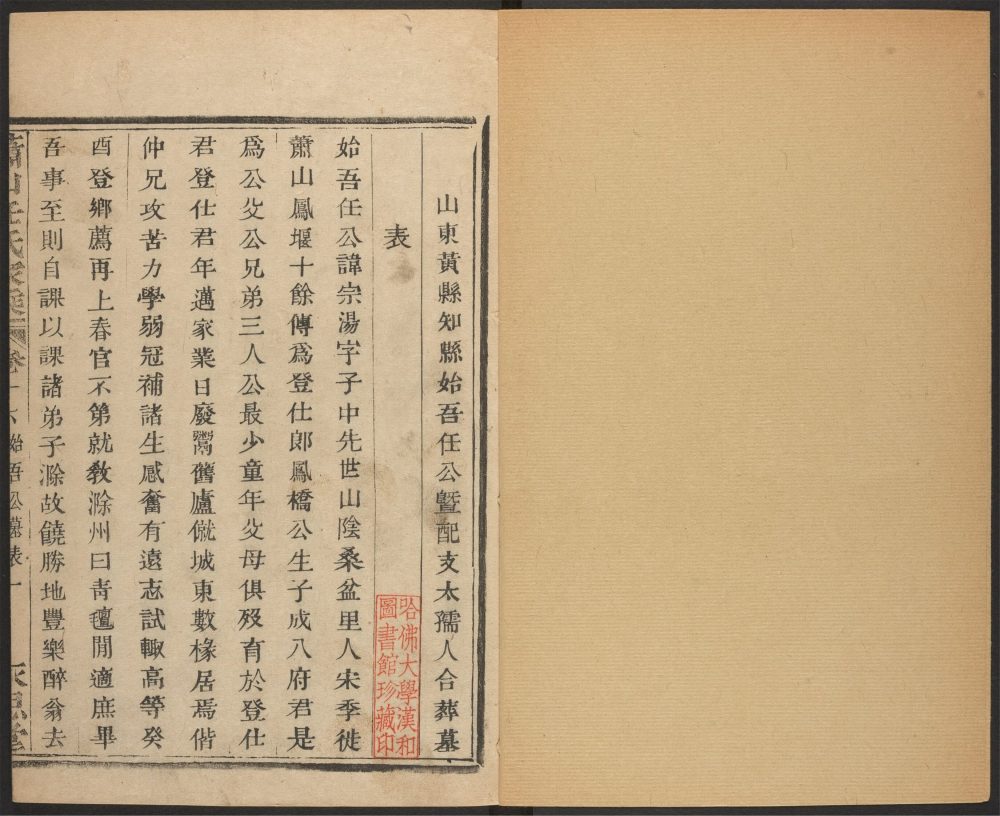 山東黃縣知縣始吾任公曁配支太孺人合葬墓
表
始吾任公諱宗湯字子中先世山陰桑盆里人宋季徙
蕭山鳳堰十餘傳爲登仕郎鳳橋公生子成八府君是
爲公父公兄弟三人公最少童年父母俱歿育於登仕
君登仕君年邁家業日廢鬻舊廬僦城東數椽居焉偕
仲兄攻苦力學弱冠補諸生感奮有遠志試輙高等癸
酉登鄉薦再上春官不第就敎滁州曰靑氊閒適庶畢
吾事至則自課以課諸弟子滁故饒勝地豐樂醉翁去
蕭山任氏家乘
卷十六
始吾公墓表
一
永思堂
哈佛大學漢和
圖書館珍藏印